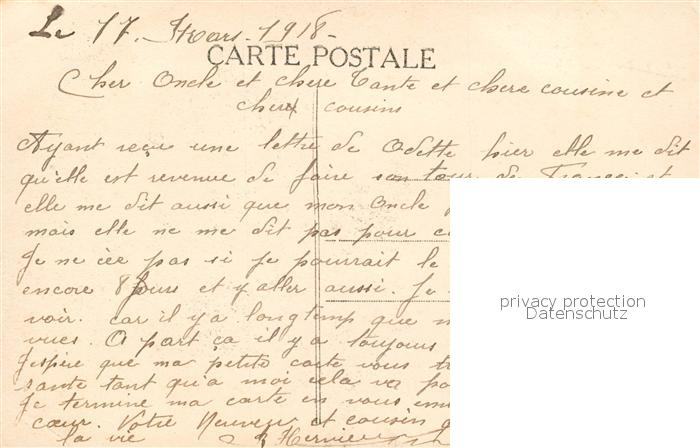 Le 17 Mars 1918-
CARTE POSTALE
Cher Oncle et chere Tante et chere cousine et
chers cousins
Ayant reçu une lettre de Odette hier elle me dit
qu'elle est revenue de faire son tour de France et
elle me dit aussi que mon Oncle
mais elle ne me dit pas pour
Je ne pas si je pourrait le
encore 8 jours et y aller aussi. Je
voir. car il y a longtemp que
vues. A part ça il y a toujours
J'espère que ma petite carte vous
santé tant qu'a moi cela va
Je termine ma carte en vous
cœur. Votre Neuveu et cousin
la vie
privacy protection
Datenschutz